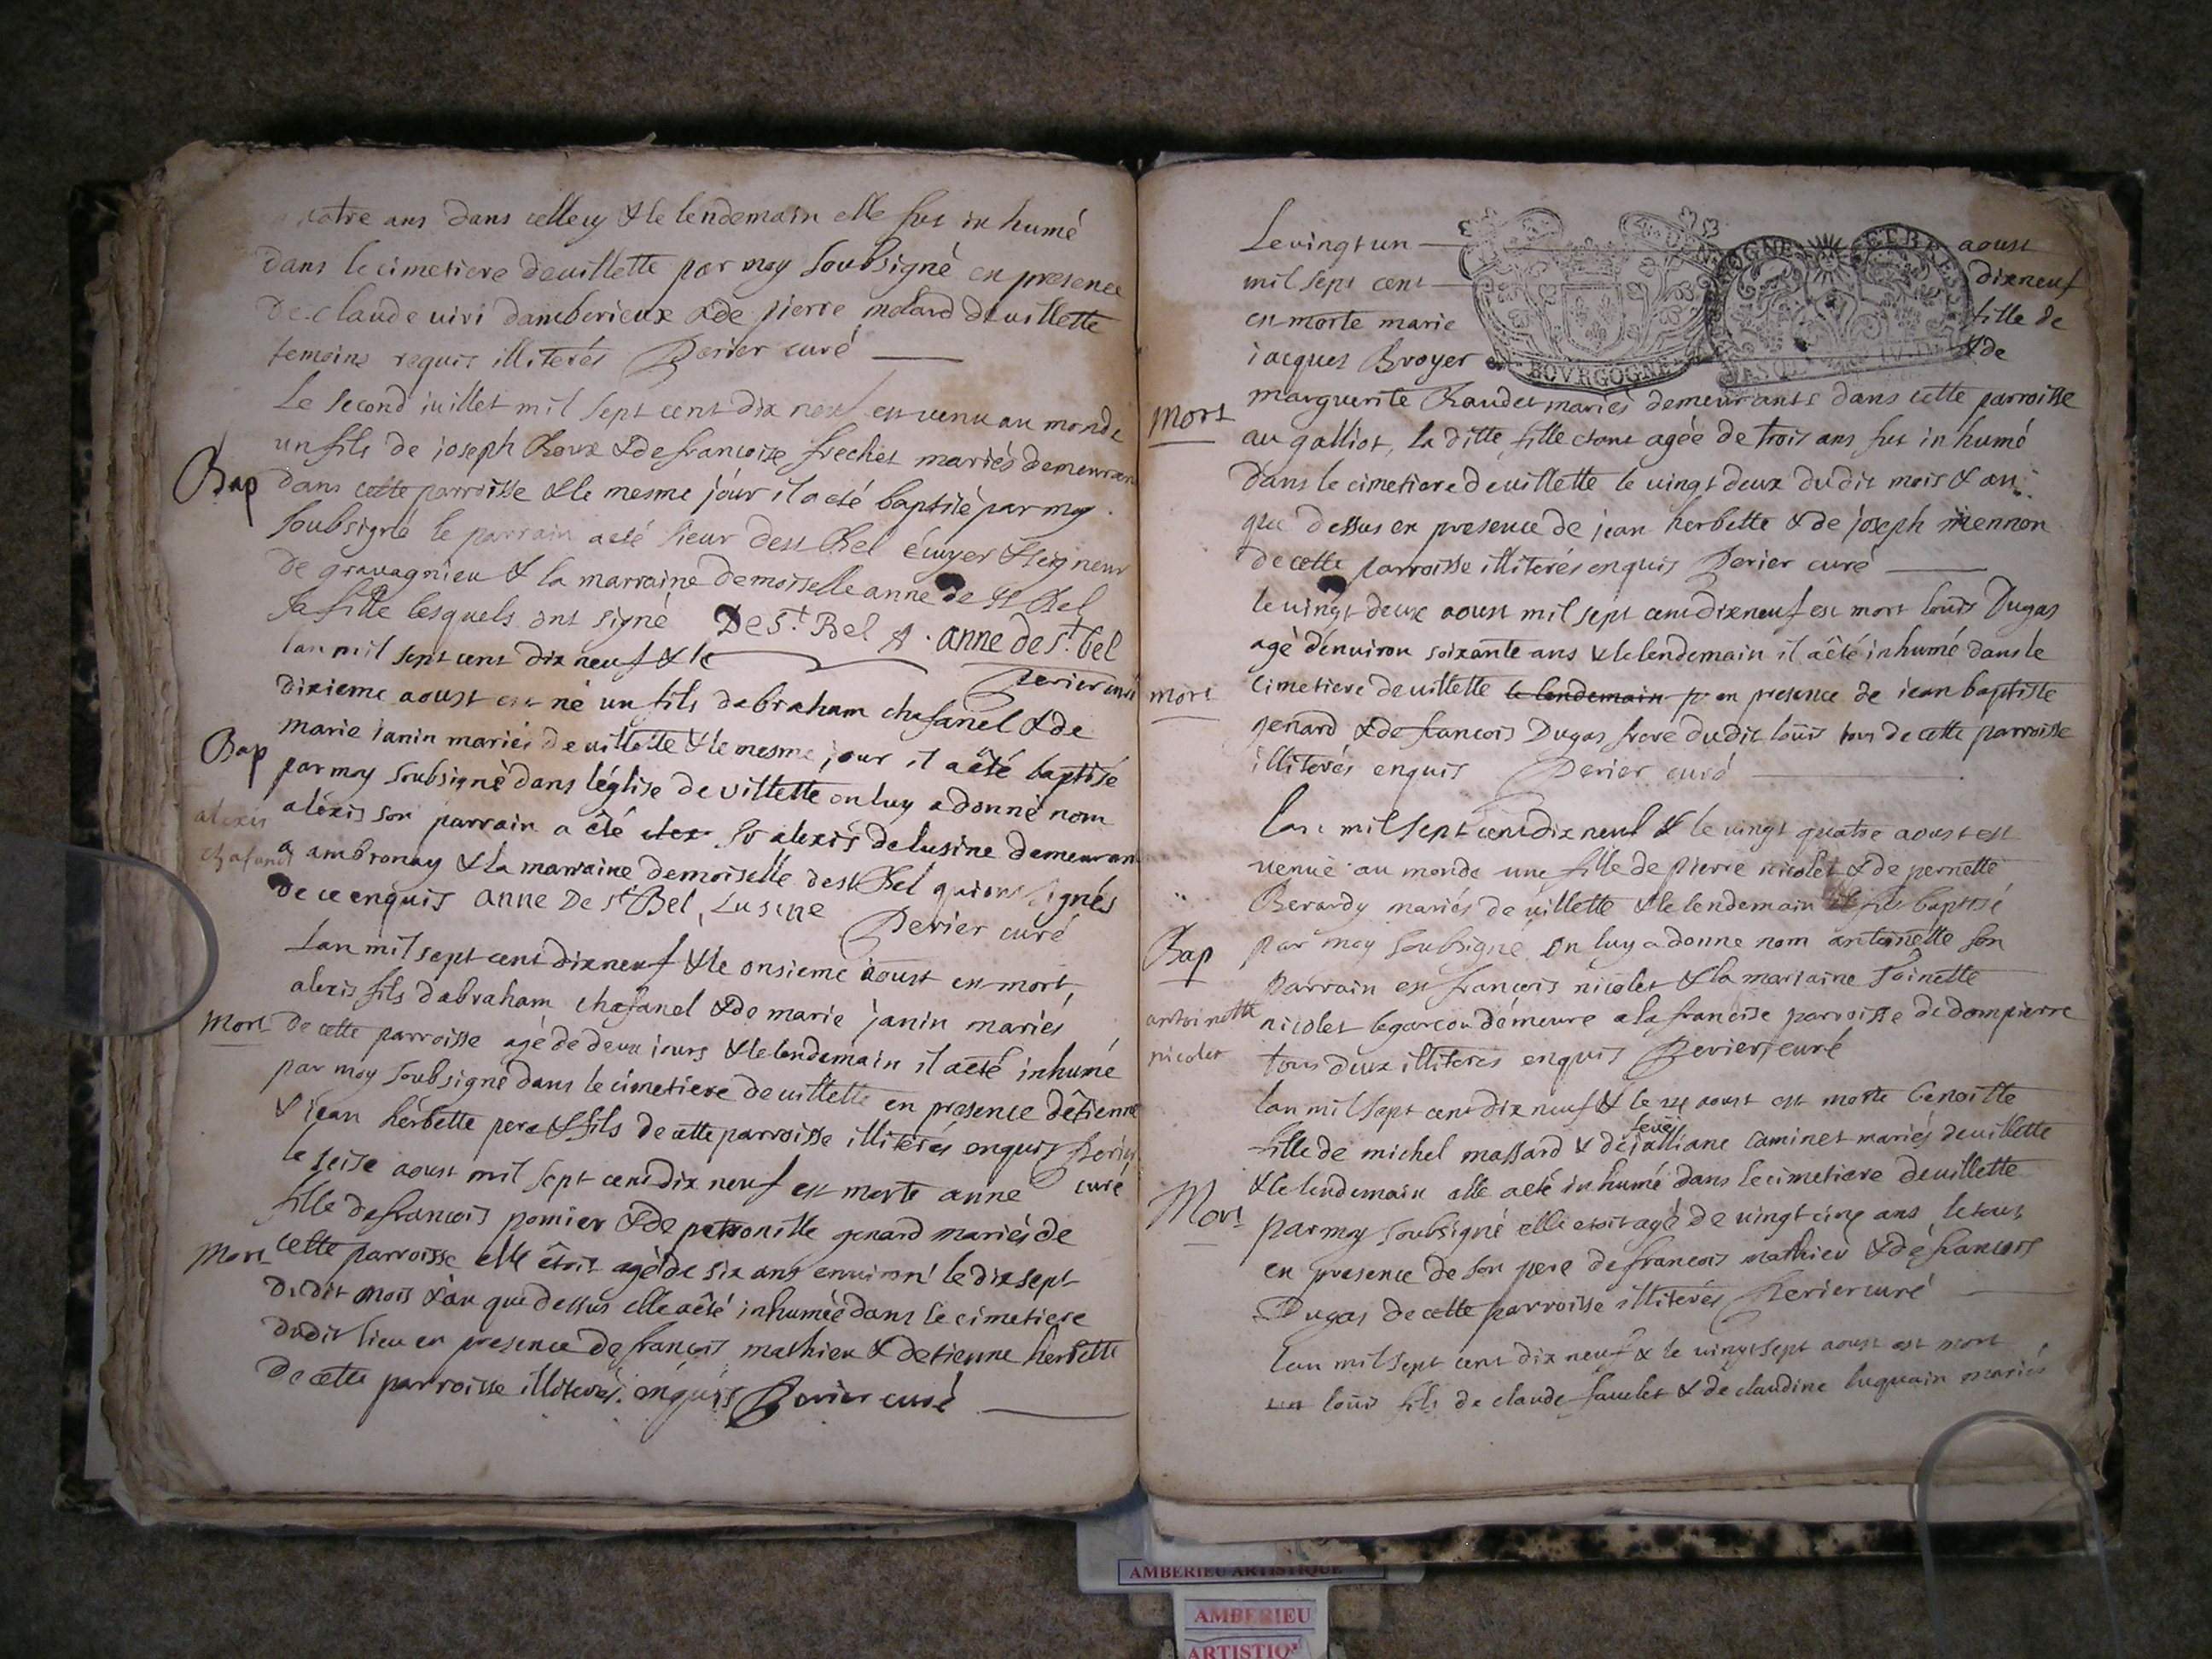 catre ans dans celley & le lendemain elle fut in humé
dans le cimetiere devillette par moy soubsigné en presence
De claude vivi damberieux & de pierre molard de villette
temoins requis illiterés Perier curé
Le second juillet mil sept cent dix neuf est venu au monde
un fils de joseph Roux & de francoise frechet mariés demeuran
Bap
dans cette parroisse & le mesme jour il a eté baptisé par moy
soubsigné le parrain a eté sieur de st Bel écuyer & seigneur
de gravagnieu & la marraine demoiselle anne de st Bel
sa fille lesquels ont signé De St. Bel A. anne de st. bel
Perier curé
lan mil sept cent dix neuf & le
dixieme aoust est né un fils dabraham chafanel & de
marie janin mariés de villette & le mesme jour il a êté baptisé
Bap
par moy soubsigné dans léglise de villette on luy a donné nom
alexis
aléxis son parrain a êté sr alexis delusine demeuran
a ambronay & la marraine demoiselle de st Bel qui ont signés
de ce enquis anne De st Bel, Lusine Perier curé
Lan mil sept cent dixneuf & le onsieme aoust est mort
alexis fils dabraham chafanel & de marie janin mariés
Mort
de cette parroisse agé de deux jours & le lendemain il a eté inhumé
par moy soubsigné dans le cimetiere de villette en presence dêtienne
& jean hérbette pere & fils de cette parroisse illiterés enquis Perier
curé
le seise aoust mil sept cent dix neuf est morte anne
fille de francois pomier & de petronille genard mariés de
Mort
cette parroisse elle êtoit agéé de six ans environ le dixsept
dudit mois & an que dessus elle a êté inhumée dans le cimetiere
dudit lieu en presence de francois mathieu & detienne herbette
de cette parroisse illiterés enquis Perier curé
Le vingt un aoust
mil sept cent dixneuf
est morte marie fille de
jacques Broyer & de
BOVRGOGNE
marguerite Raudet mariés demeurants dans cette parroisse
Mort
au galliot, la ditte fille etant agée de trois ans fut in humé
dans le cimetiere de villette le vingt deux dudit mois & an
que dessus en presence de jean herbette & de joseph mennon
de cette parroisse illiterés enquis Perier curé
le vingt deux aoust mil sept cent dixneuf est mort louis Dugas
agé dénviron soixante ans & le lendemain il a êté inhumé dans le
mort
cimetiere de villette le lendemain en presence de jean baptiste
genard & de francois Dugas frere dudit louis tous de cette parroisse
illiterés enquis Perier curé
lan mil sept cent dix neuf & le vingt quatre aoust est
venuë au monde une fille de pierre nicolet & de pernette
Berardy mariés de villette & le lendemain fut baptisé
Bap
par moy soubsigné on luy a donné nom antoinette son
parrain est francois nicolet & la marraine Toinette
antoinette
nicolet le garcon démeure a la francise parroisse de dompierre
nicolet
tous deux illiteres enquis Perier curé
lan mil sept cent dix neuf & le aoust est morte benoitte
feuë
fille de michel massard & de julliane caminet mariés de villette
& le lendemain elle a eté inhumé dans le cimetiere de villette
Mort
par moy soubsigné elle etoit agé de vingt cinq ans le tout
en presence de son pere de francois mathieu & dé francois
Dugas de cette parroisse illiterés Perier curé
lan mil sept cent dix neuf & le vingt sept aoust est mort
louis fils de claude fauelet & de claudine luquain mariés
AMBERIEU ARTISTIQUE
AMBERIEU
ARTISTIQ